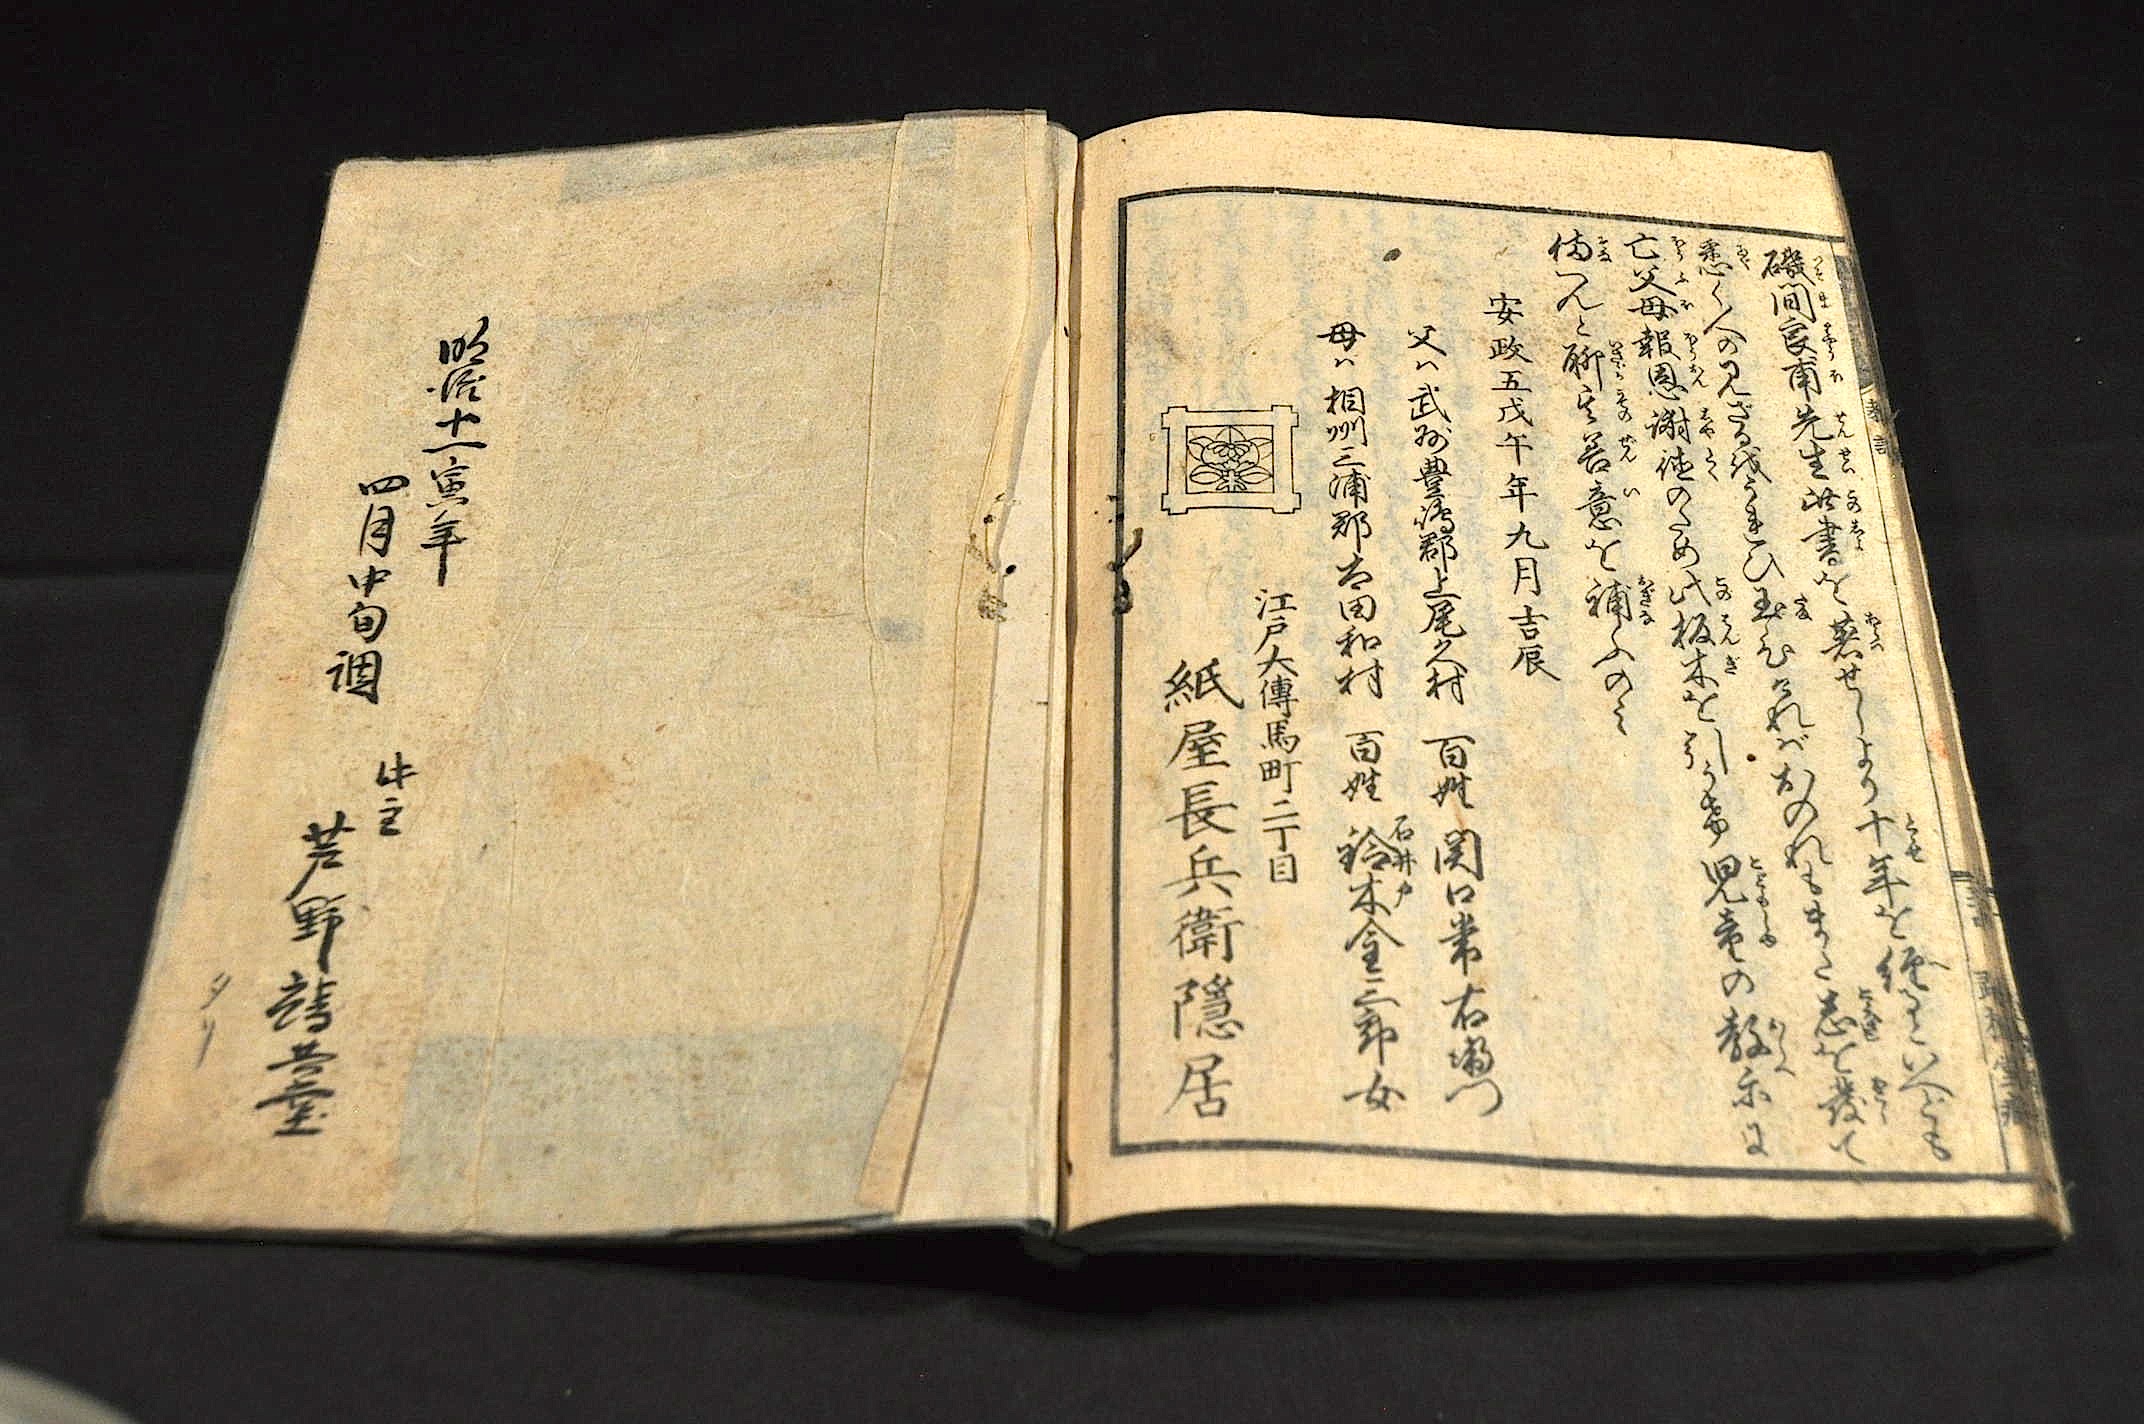 磯間良甫先生此書を著せしより十年を経るといへども
悉く人の見ざるをうれひ玉ひければおのれもまた志を發して
亡父母報恩謝徳のため此板木を引うけ児童の教示に
備へんと聊其善意を補ふのみ
安政五戊午年九月吉辰
父ハ武州豊嶋郡上尾久村 百姓 関口常右衛門
母ハ相州三浦郡太田和村 百姓 石井戸 鈴木金三郎女
江戸大傳馬町二丁目
紙屋長兵衛隠居
明治十一寅年
四月中旬調
此主
芦野